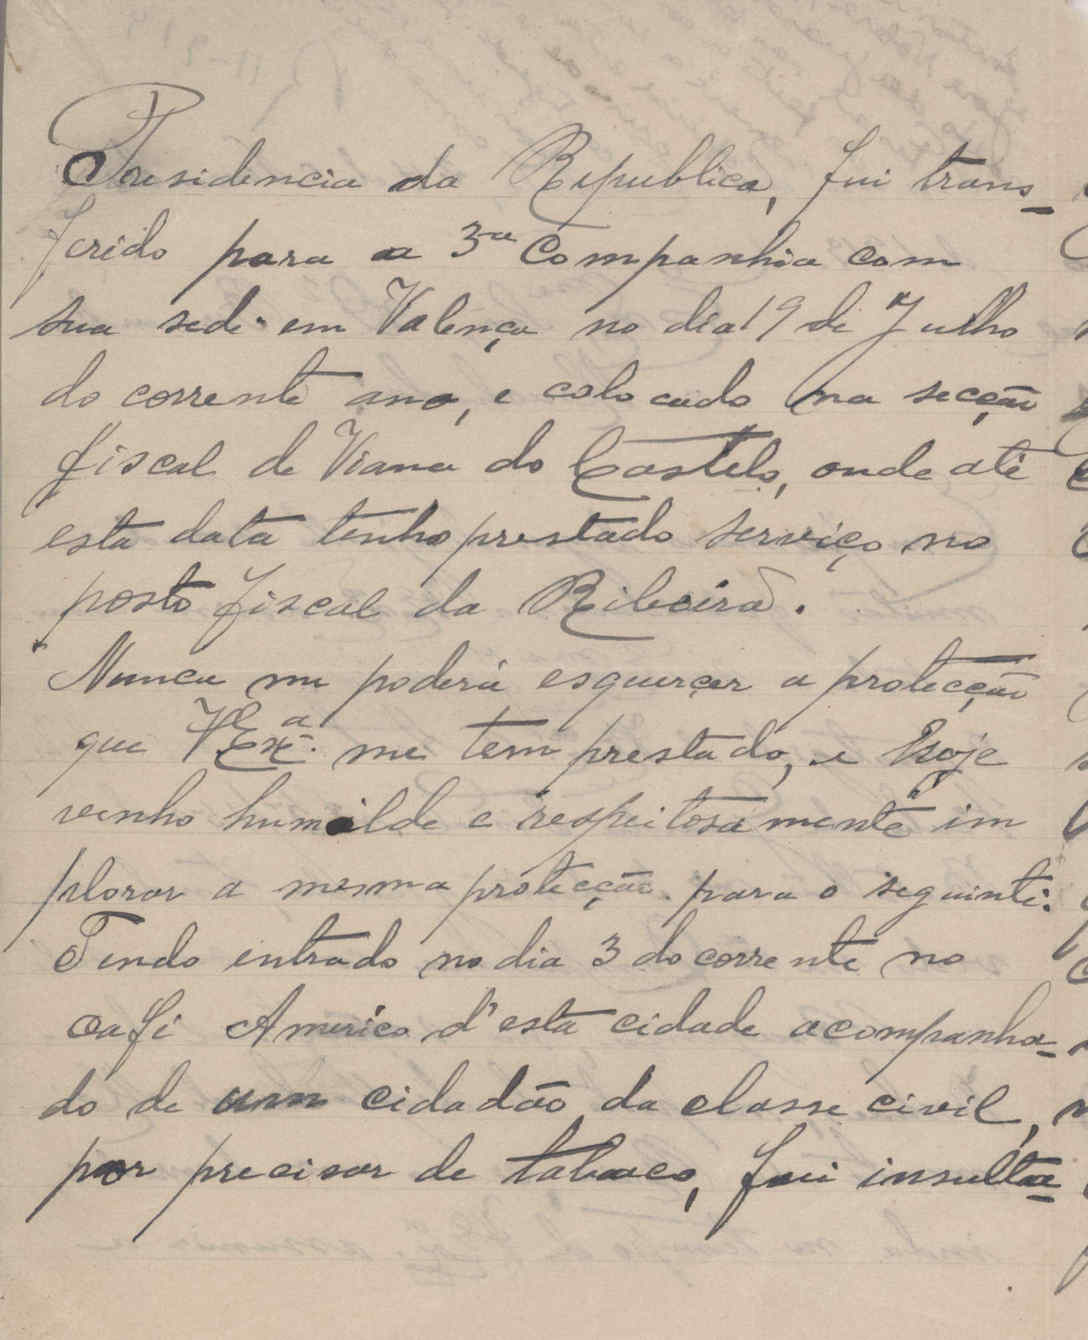 Presidencia da Republica, fui trans-
ferido para a 3ª Companhia com
sua sede em Valença no dia 19 de Julho
do corrente ano, e colocado na secção
fiscal de Viana do Castelo, onde até
esta data tenho prestado serviço no
posto fiscal da Ribeira.
Nunca me poderá esquerçer a protecção
que VExª. me tem prestado, e hoje
venho humilde e respeitosamente im
plorar a mesma protecção para o seguinte:
Tendo entrado no dia 3 do corrente no
Café America d'esta cidade acompanha-
do de um cidadão da classe civil,
por precisar de tabaco, fui insulta-